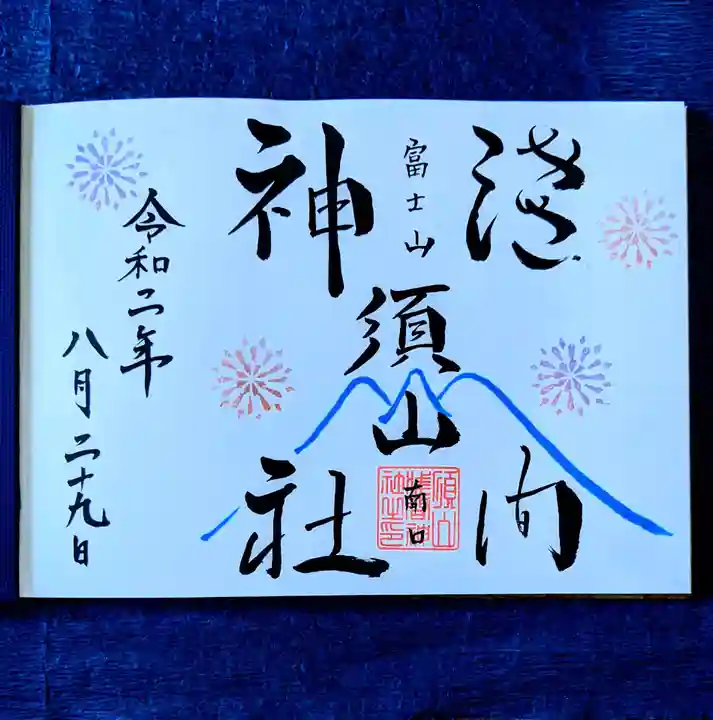 浅間
富士山
須山
南口
須山浅間神社印
神社
令和二年
八月二十九日